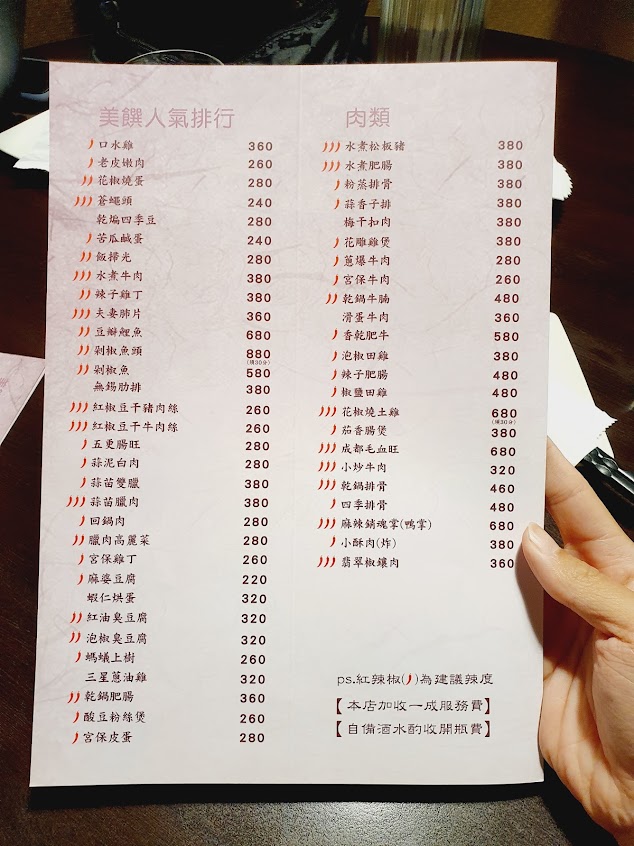 美饌人氣排行
口水雞 360
老皮嫩肉 260
花椒燒蛋 280
蒼蠅頭 240
乾煸四季豆 280
苦瓜鹹蛋 240
飯掃光 280
水煮牛肉 380
辣子雞丁 380
夫妻肺片 360
豆瓣鯉魚 680
剁椒魚頭 880
(須30分)
剁椒魚 580
無錫肋排 380
紅椒豆干豬肉絲 260
紅椒豆干牛肉絲 260
五更腸旺 280
蒜泥白肉 280
蒜苗雙臘 380
蒜苗臘肉 380
回鍋肉 280
臘肉高麗菜 280
宮保雞丁 260
麻婆豆腐 220
蝦仁烘蛋 320
紅油臭豆腐 320
泡椒臭豆腐 320
螞蟻上樹 260
三星蔥油雞 320
乾鍋肥腸 360
酸豆粉絲煲 260
宮保皮蛋 280
肉類
水煮松板豬 380
水煮肥腸 380
粉蒸排骨 380
蒜香子排 380
梅干扣肉 380
花雕雞煲 380
蔥爆牛肉 280
宮保牛肉 260
乾鍋牛腩 480
滑蛋牛肉 360
香乾肥牛 580
泡椒田雞 380
辣子肥腸 480
椒鹽田雞 480
花椒燒土雞 680
(須30分)
茄香腸煲 380
成都毛血旺 680
小炒牛肉 320
乾鍋排骨 460
四季排骨 480
麻辣銷魂掌(鴨掌) 680
小酥肉(炸) 380
翡翠椒鑲肉 360
ps.紅辣椒( )為建議辣度
【本店加收一成服務費】
【自備酒水酌收開瓶費】